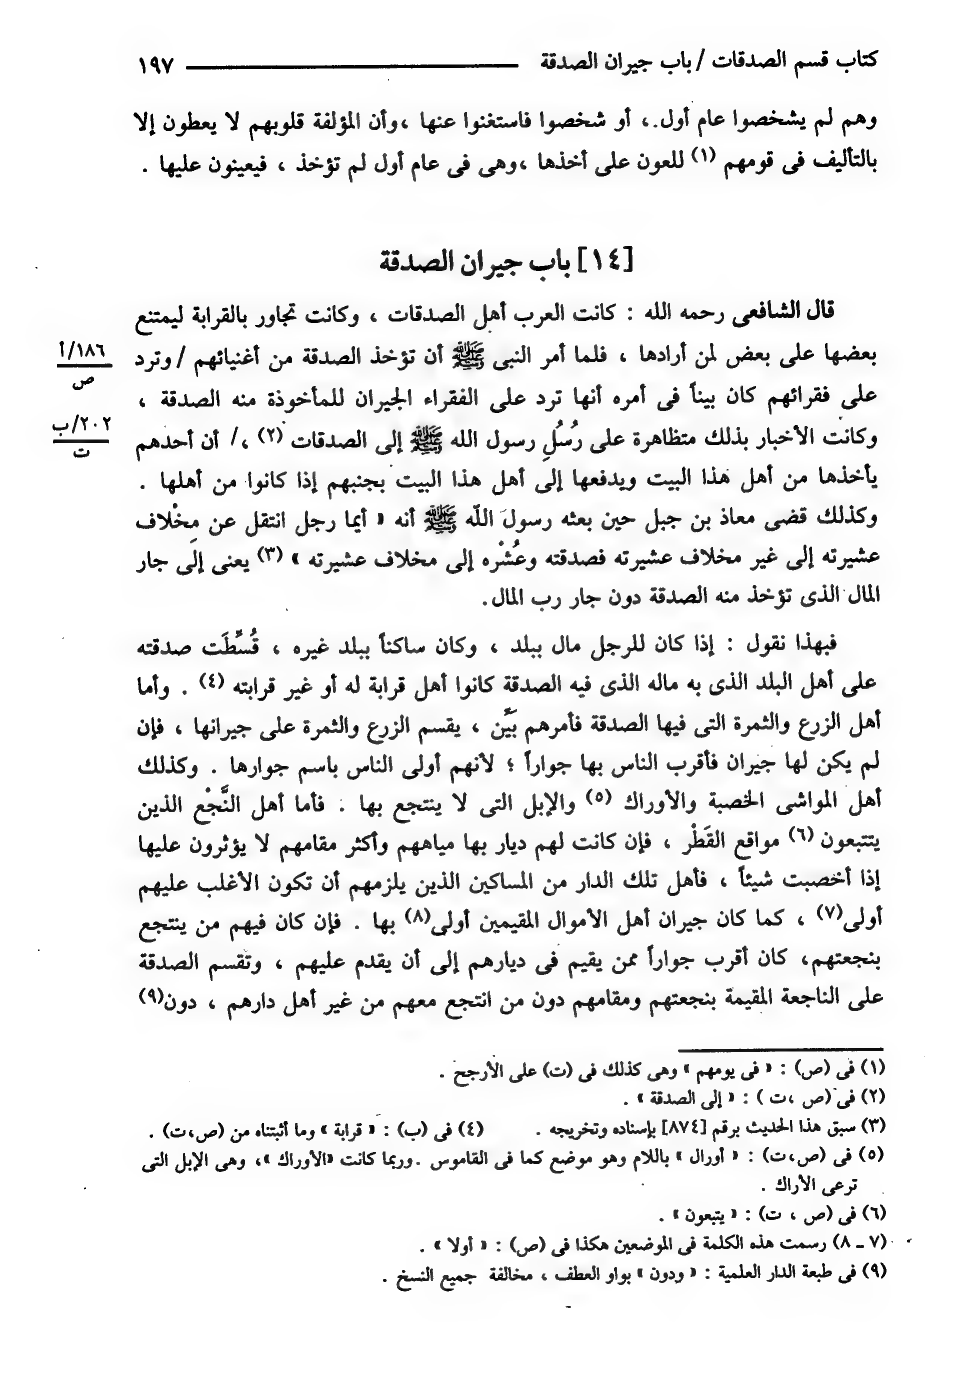 كتاب قسم الصدقات / باب جيران الصدقة ١٩٧
وهم لم يشخصوا عام أول ، أو شخصوا فاستغنوا عنها ، وأن المؤلفة قلوبهم لا يعطون إلا
بالتأليف فى قومهم (١) للعون على أخذها ، وهى فى عام أول لم تؤخذ ، فيعينون عليها .
[١٤] باب جيران الصدقة
قال الشافعى رحمه الله : كانت العرب أهل الصدقات ، وكانت تجاور بالقرابة ليمتنع
بعضها على بعض لمن أرادها ، فلما أمر النبى ﷺ أن تؤخذ الصدقة من أغنيائهم / وترد
١٨٦/أ
ص
على فقرائهم كان بيناً فى أمره أنها ترد على الفقراء الجيران للمأخوذة منه الصدقة ،
وكانت الأخبار بذلك متظاهرة على رُسُلِ رسول الله ﷺ إلى الصدقات (٢) ، / أن أحدهم
٢٠٢/ب
ت
يأخذها من أهل هذا البيت ويدفعها إلى أهل هذا البيت بجنبهم إذا كانوا من أهلها .
وكذلك قضى معاذ بن جبل حين بعثه رسول الله ﷺ أنه « أيما رجل انتقل عن مِخْلاف
عشيرته إلى غير مخلاف عشيرته فصدقته وعُشْره إلى مخلاف عشيرته » (٣) يعنى إلى جار
المال الذى تؤخذ منه الصدقة دون جار رب المال.
فبهذا نقول : إذا كان للرجل مال ببلد ، وكان ساكناً ببلد غيره ، قُسِّطَت صدقته
على أهل البلد الذى به ماله الذى فيه الصدقة كانوا أهل قرابة له أو غير قرابته (٤) . وأما
أهل الزرع والثمرة التى فيها الصدقة فأمرهم بَيِّن ، يقسم الزرع والثمرة على جيرانها ، فإن
لم يكن لها جيران فأقرب الناس بها جواراً ؛ لأنهم أولى الناس باسم جوارها . وكذلك
أهل المواشى الخصبة والأوراك (٥) والإبل التى لا ينتجع بها . فأما أهل النَّجْع الذين
يتتبعون (٦) مواقع القَطْر ، فإن كانت لهم ديار بها مياههم وأكثر مقامهم لا يؤثرون عليها
إذا أخصبت شيئاً ، فأهل تلك الدار من المساكين الذين يلزمهم أن تكون الأغلب عليهم
أولى(٧) ، كما كان جيران أهل الأموال المقيمين أولى(٨) بها . فإن كان فيهم من ينتجع
بنجعتهم، كان أقرب جواراً ممن يقيم فى ديارهم إلى أن يقدم عليهم ، وتقسم الصدقة
على الناجعة المقيمة بنجعتهم ومقامهم دون من انتجع معهم من غير أهل دارهم ، دون(٩)
(١) فى (ص) : « فى يومهم » وهى كذلك فى (ت) على الأرجح .
(٢) فى (ص ، ت ) : « إلى الصدقة » .
(٣) سبق هذا الحديث برقم [٨٧٤] بإسناده وتخريجه . (٤) فى (ب) : « قرابة » وما أثبتناه من (ص،ت) .
(٥) فى (ص،ت) : « أورال » باللام وهو موضع كما فى القاموس . وربما كانت «الأوراك »، وهى الإبل التى
ترعى الأراك .
(٦) فى (ص ، ت) : « يتبعون » .
(٧ ـ ٨) رسمت هذه الكلمة فى الموضعين هكذا فى (ص) : « أولا » .
(٩) فى طبعة الدار العلمية : « ودون » بواو العطف ، مخالفة جميع النسخ .